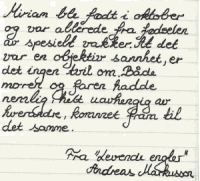 Miriam ble født i oktober
og var allerede fra fødselen
av spesielt vakker. At det
var en objektiv sannhet, er
det ingen tvil om. Både
moren og faren hadde
nemlig, helt uavhengig av
hverandre, kommet fram til
det samme.
Fra "Levende engler"
Andreas Markusson